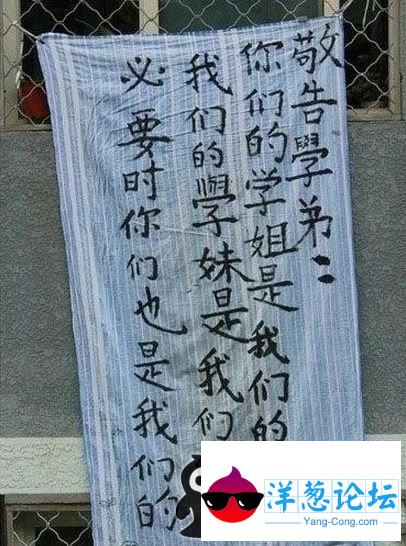 敬告學弟：
你们的学姐是我们的
我们的學妹是我们
必要时你们也是我们的
洋葱论坛
Yang-Cong.com